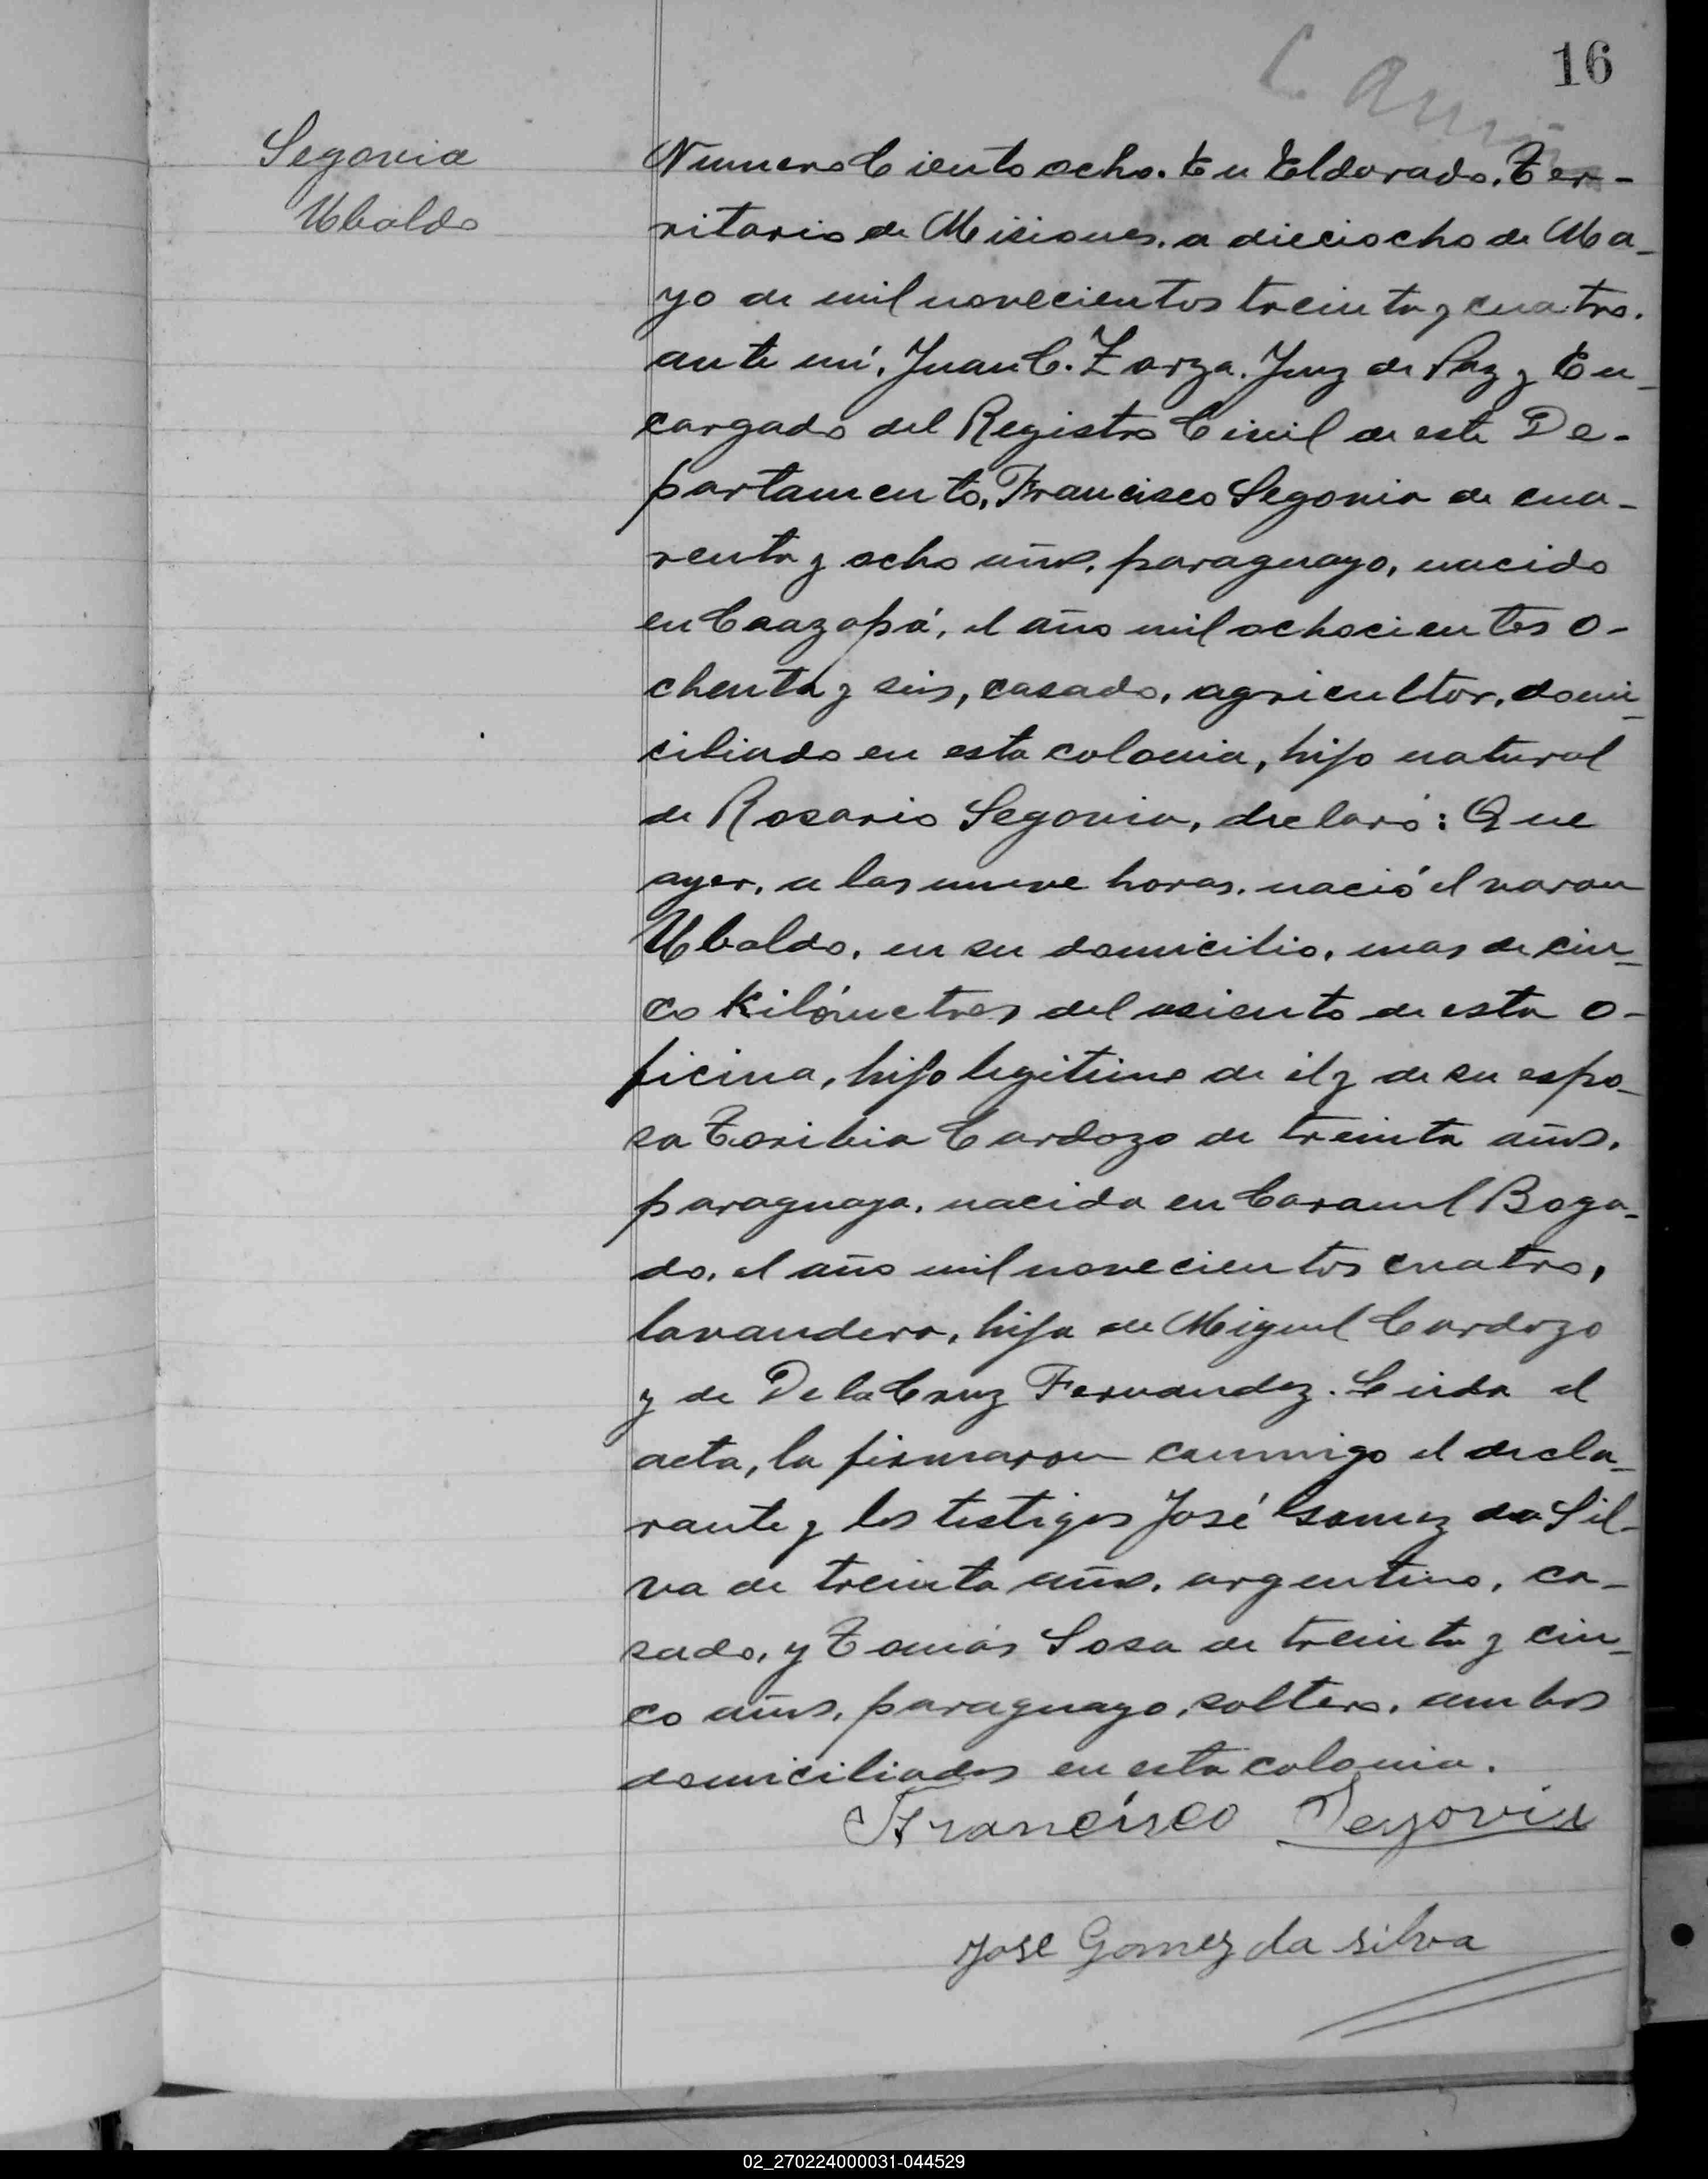 16
Segovia
Ubaldo
Numero Ciento ocho. En Eldorado, Ter-
ritorio de Misiones, a dieciocho de Ma-
yo de mil novecientos treinta y cuatro,
ante mí, Juan C. Zarza, Juez de Paz y En-
cargado del Registro Civil de este De-
partamento, Francisco Segovia de cua-
renta y ocho años, paraguayo, nacido
en Caazapá, el año mil ochocientos o-
chenta y seis, casado, agricultor, domi-
ciliado en esta colonia, hijo natural
de Rosario Segovia, declaró: Que
ayer, a las nueve horas, nació el varon
Ubaldo, en su domicilio, mas de cin-
co kilómetros del asiento de esta o-
ficina, hijo legitimo de él y de su espo-
sa Toribia Cardozo de treinta años,
paraguaya, nacida en Coronel Boga-
do, el año mil novecientos cuatro,
lavandera, hija de Miguel Cardozo
y de De la Cruz Fernandez. Leida el
acta, la firmaron conmigo el decla-
rante y los testigos José Gomez da Sil-
va de treinta años, argentino, ca-
sado, y Tomás Sosa de treinta y cin-
co años, paraguayo, soltero, ambos
domiciliados en esta colonia.
Francisco Segovia
Jose Gomez da silva
02_270224000031-044529